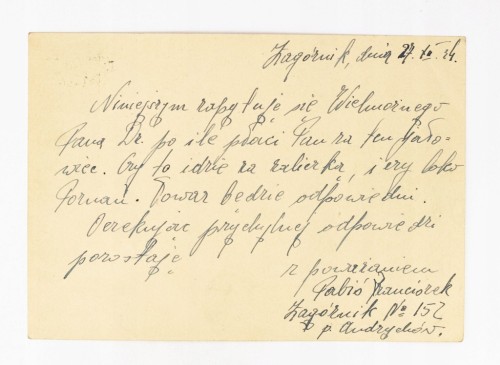 Zagórnik, dnia 27. XI. 34.
Niniejszym zapytuję się Wielmożnego
Pana Dr. po ile płaci Pan za ten jało-
wiec. Czy to idzie za zaliczką, i czy loko
Poznań. Towar będzie odpowiedni.
Oczekując przychylnej odpowiedzi
pozostaję
z poważaniem
Babió Franciszek
Zagórnik № 152
p. Andrychów.